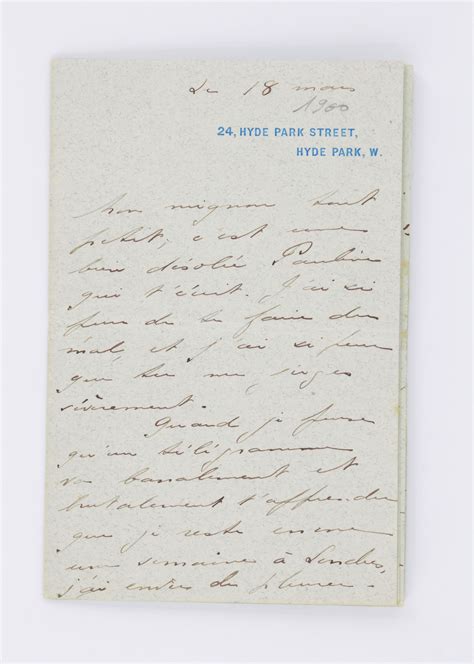 Le 18 mars
1900
24, HYDE PARK STREET,
HYDE PARK, W.
Mon mignon tout
petit, c'est une
bien désolée Pauline
qui t'écrit. J'ai si
peur de te faire du
mal, et j'ai si peur
que tu me juges
sévèrement.
Quand je pense
qu'un télégramme
va banalement et
brutalement t'apprendre
que je reste encore
une semaine à Londres,
j'ai envie de pleurer.